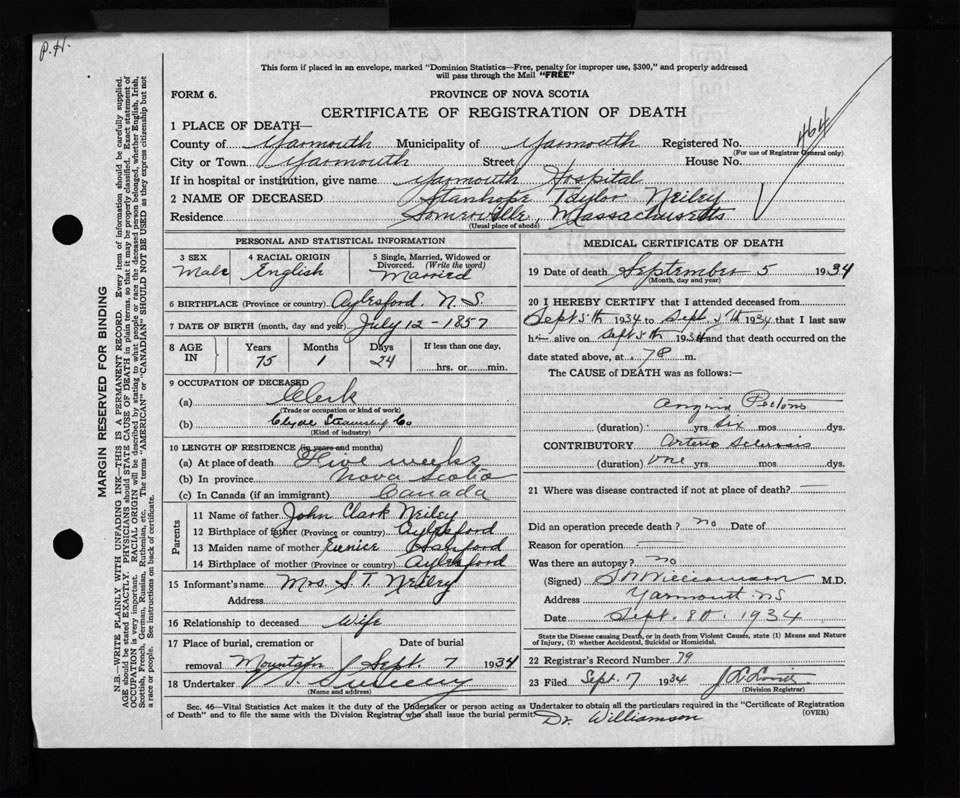 P.H.
This form if placed in an envelope, marked "Dominion Statistics—Free, penalty for improper use, $300," and properly addressed
will pass through the Mail "FREE"
FORM 6. PROVINCE OF NOVA SCOTIA
CERTIFICATE OF REGISTRATION OF DEATH
464
1 PLACE OF DEATH—
County of Yarmouth Municipality of Yarmouth Registered No.
(For use of Registrar General only)
City or Town Yarmouth Street House No.
If in hospital or institution, give name Yarmouth Hospital
2 NAME OF DECEASED Stanhope Taylor Neiley
Residence Somerville, Massachusetts
(Usual place of abode)
PERSONAL AND STATISTICAL INFORMATION
3 SEX 4 RACIAL ORIGIN 5 Single, Married, Widowed or
Divorced. (Write the word)
Male English Married
6 BIRTHPLACE (Province or country) Aylesford. N.S.
7 DATE OF BIRTH (month, day and year) July 12 - 1857
8 AGE IN Years Months Days If less than one day,
75 1 24 hrs. or min.
9 OCCUPATION OF DECEASED
(a) Clerk
(Trade or occupation or kind of work)
(b) Clyde Steamship Co
(Kind of industry)
10 LENGTH OF RESIDENCE (in years and months)
(a) At place of death Five weeks
(b) In province Nova Scotia
(c) In Canada (if an immigrant) Canada
Parents
11 Name of father John Clark Neiley
12 Birthplace of father (Province or country) Aylesford
13 Maiden name of mother Eunice
14 Birthplace of mother (Province or country) Aylesford
15 Informant's name Mrs. S. T. Neiley
Address
16 Relationship to deceased Wife
17 Place of burial, cremation or Date of burial
removal Mountain Sept 7 1934
18 Undertaker
(Name and address)
MEDICAL CERTIFICATE OF DEATH
19 Date of death September 5 1934
(Month, day and year)
20 I HEREBY CERTIFY that I attended deceased from
Sept 5th 1934 to Sept 5th 1934 that I last saw
him alive on Sept 5th 1934 and that death occurred on the
date stated above, at m.
The CAUSE of DEATH was as follows:—
Angina Pectoris
(duration) yrs six mos dys.
CONTRIBUTORY Arterio Sclerosis
(duration) one yrs mos dys.
21 Where was disease contracted if not at place of death?
Did an operation precede death? no Date of
Reason for operation
Was there an autopsy? no
(Signed) Williamson M.D.
Address Yarmouth NS
Date Sept. 8th. 1934
State the Disease causing Death, or in death from Violent Causes, state (1) Means and Nature
of Injury, (2) whether Accidental, Suicidal or Homicidal.
22 Registrar's Record Number 79
23 Filed Sept. 7 1934
(Division Registrar)
Sec. 46—Vital Statistics Act makes it the duty of the Undertaker or person acting as Undertaker to obtain all the particulars required in the "Certificate of Registration
of Death" and to file the same with the Division Registrar who shall issue the burial permit.
(OVER)
Dr. Williamson
MARGIN RESERVED FOR BINDING
N.B.—WRITE PLAINLY WITH UNFADING INK—THIS IS A PERMANENT RECORD. Every item of information should be carefully supplied.
AGE should be stated EXACTLY. PHYSICIANS should STATE CAUSE OF DEATH in plain terms, so that it may be properly classified. Exact statement of
OCCUPATION is very important. RACIAL ORIGIN will be described by stating to what people or race the deceased person belonged, whether English, Irish,
Scottish, French, German, Russian, Ruthenian, etc. The terms "AMERICAN" or "CANADIAN" SHOULD NOT BE USED as they express citizenship but not
a race or people. See instructions on back of certificate.